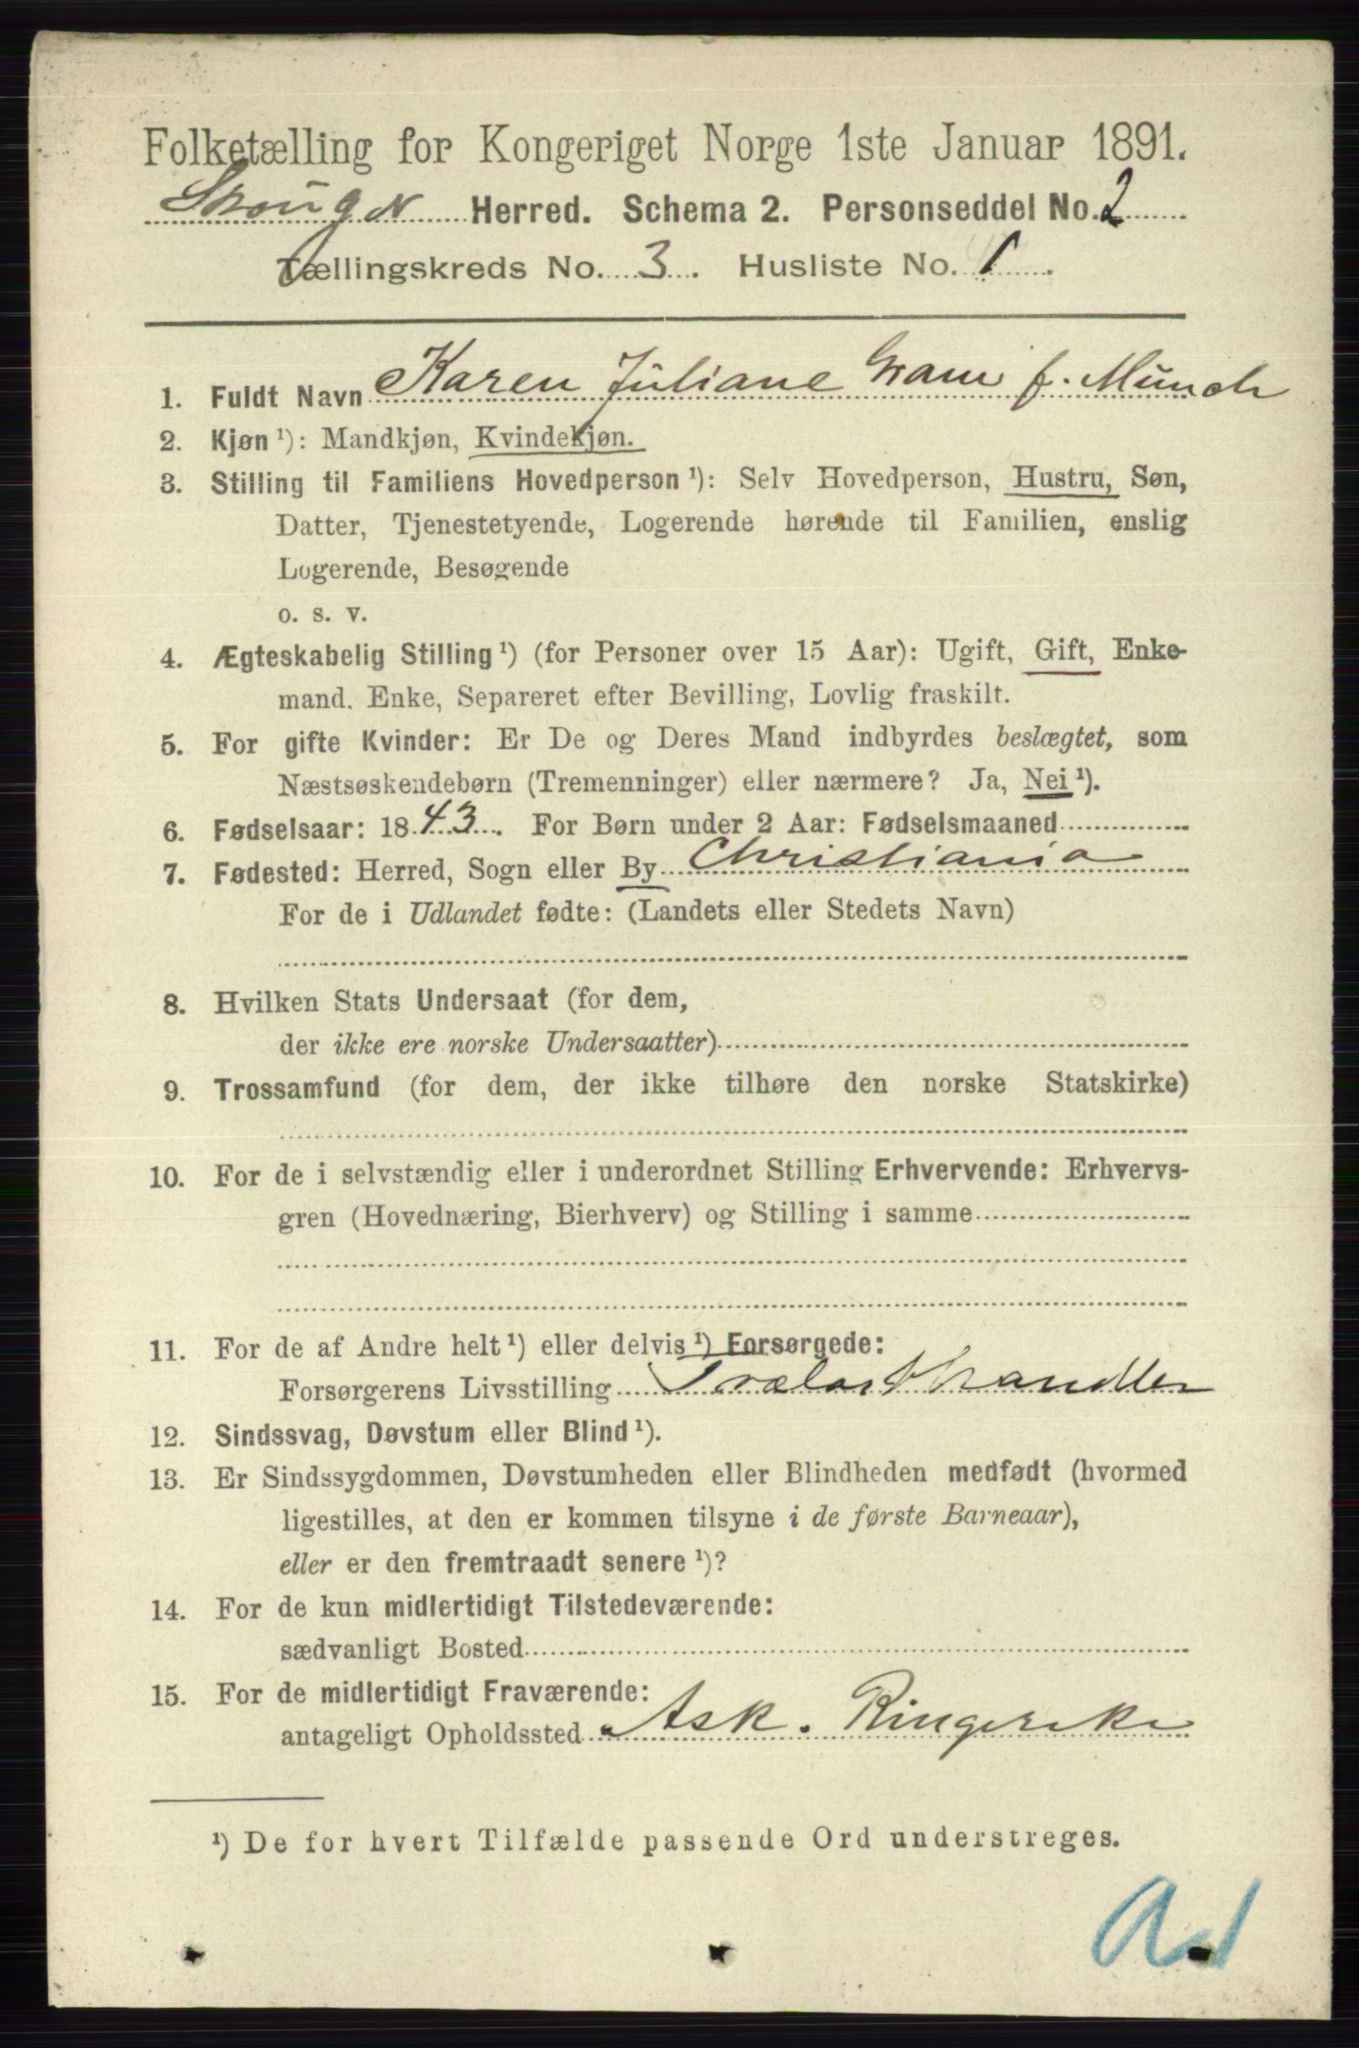 Folketælling for Kongeriget Norge 1ste Januar 1891.
Herred. Schema 2. Personseddel No. 2
Tællingskreds No. 3. Husliste No. 1.
1. Fuldt Navn Karen Juliane Gram f. Münch
2. Kjøn ¹): Mandkjøn, Kvindekjøn.
3. Stilling til Familiens Hovedperson ¹): Selv Hovedperson, Hustru, Søn,
Datter, Tjenestetyende, Logerende hørende til Familien, enslig
Logerende, Besøgende
o. s. v.
4. Ægteskabelig Stilling ¹) (for Personer over 15 Aar): Ugift, Gift, Enke-
mand, Enke, Separeret efter Bevilling, Lovlig fraskilt.
5. For gifte Kvinder: Er De og Deres Mand indbyrdes beslægtet, som
Næstsøskendebørn (Tremenninger) eller nærmere? Ja, Nei ¹).
6. Fødselsaar: 1843. For Børn under 2 Aar: Fødselsmaaned
7. Fødested: Herred, Sogn eller By Christiania
For de i Udlandet fødte: (Landets eller Stedets Navn)
8. Hvilken Stats Undersaat (for dem,
der ikke ere norske Undersaatter)
9. Trossamfund (for dem, der ikke tilhøre den norske Statskirke)
10. For de i selvstændig eller i underordnet Stilling Erhvervende: Erhvervs-
gren (Hovednæring, Bierhverv) og Stilling i samme
11. For de af Andre helt ¹) eller delvis ¹) Forsørgede:
Forsørgerens Livsstilling Trælasthandler
12. Sindssvag, Døvstum eller Blind ¹).
13. Er Sindssygdommen, Døvstumheden eller Blindheden medfødt (hvormed
ligestilles, at den er kommen tilsyne i de første Barneaar),
eller er den fremtraadt senere ¹)?
14. For de kun midlertidigt Tilstedeværende:
sædvanligt Bosted
15. For de midlertidigt Fraværende:
antageligt Opholdssted Ask. Ringerike
¹) De for hvert Tilfælde passende Ord understreges.